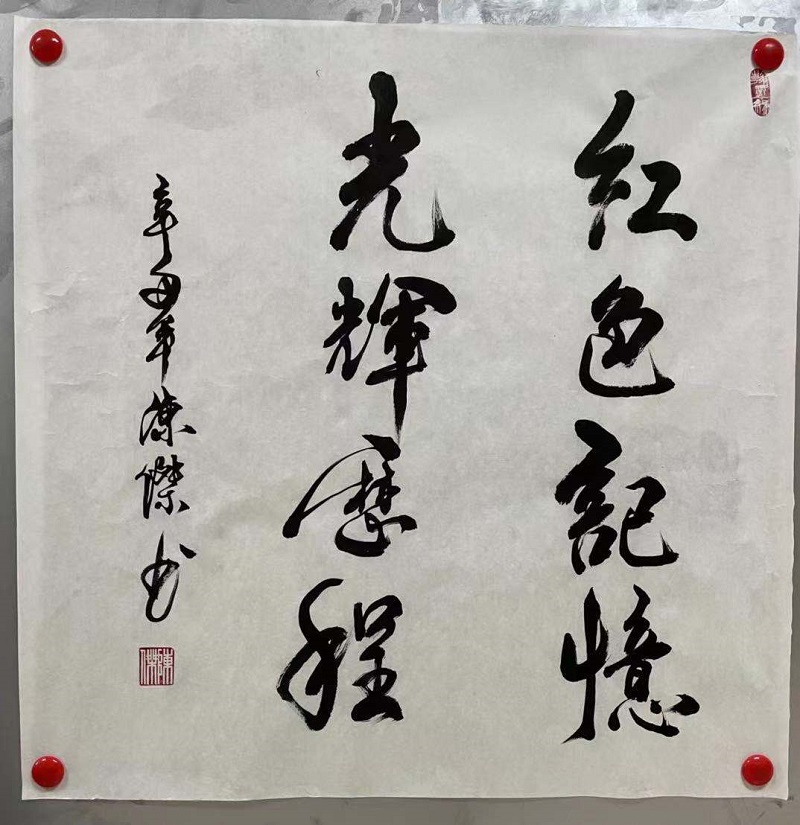 红色記憶
光輝歷程
辛丑年陳傑书